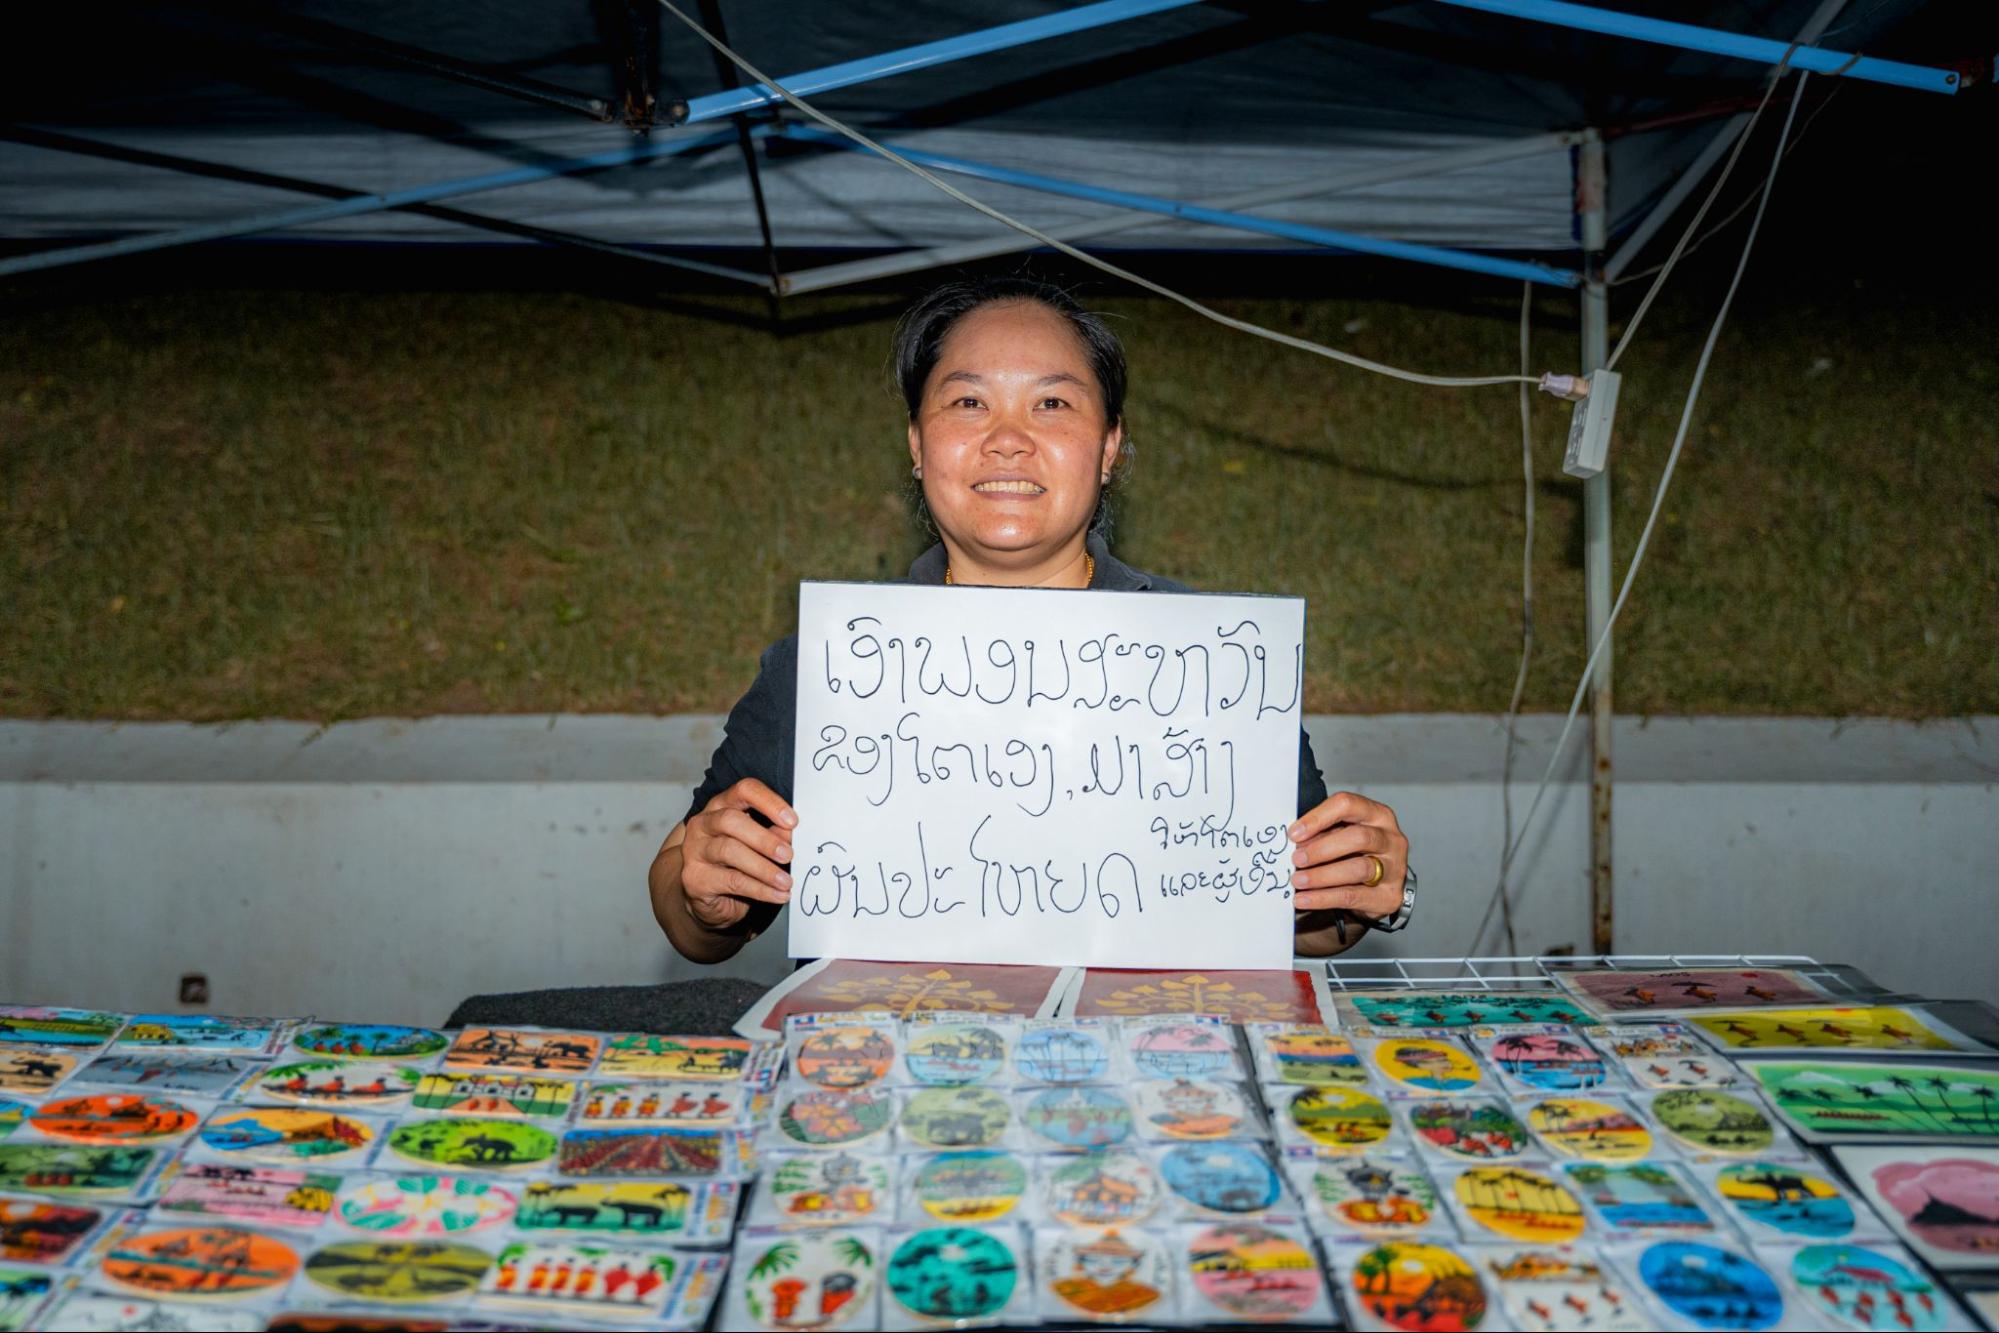 ເອົາພອນສະຫວັນ
ຂອງໂຕເອງ, ມາສ້າງ
ຜົນປະໂຫຍດ
ໃຫ້ໂຕເອງ
ແລະຜູ້ອື່ນ
LAOS